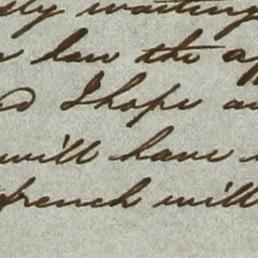 waiting
law the
I hope
will have
french will